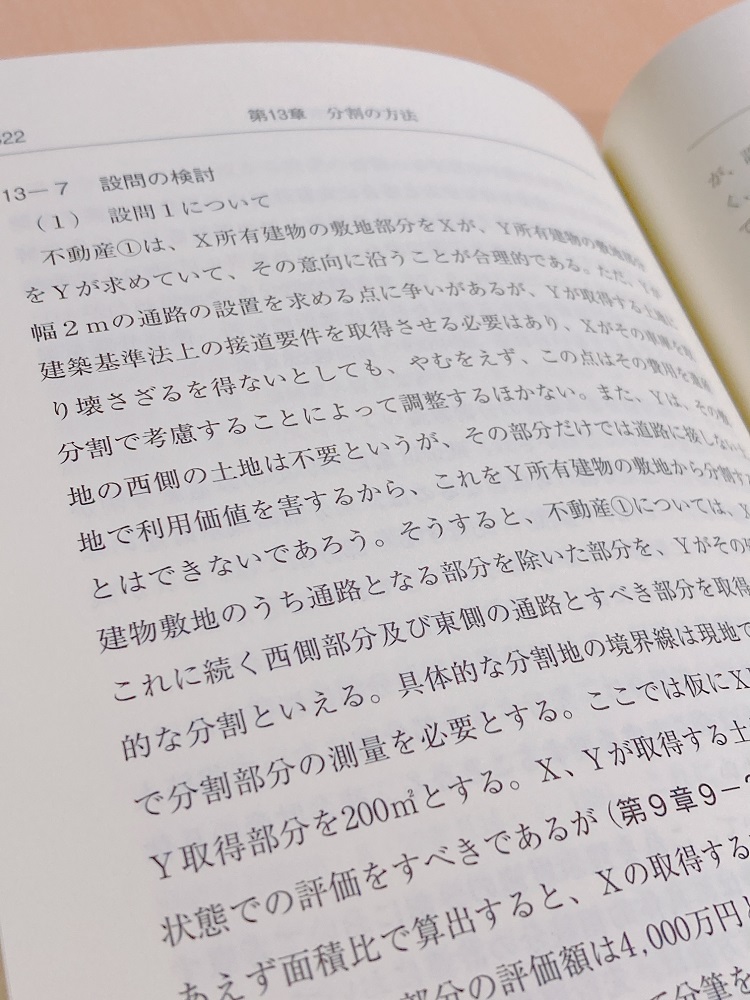 22
第13章 分割の方法
13－7 設問の検討
（1） 設問1について
不動産①は、X所有建物の敷地部分をXが、Y所有建物の敷地部分
をYが求めていて、その意向に沿うことが合理的である。ただ、Yが
幅2mの通路の設置を求める点に争いがあるが、Yが取得する土地に
建築基準法上の接道要件を取得させる必要はあり、Xがその車庫を取
り壊さざるを得ないとしても、やむをえず、この点はその費用を
分割で考慮することによって調整するほかない。また、Yは、その敷
地の西側の土地は不要というが、その部分だけでは道路に接しない
地で利用価値を害するから、これをY所有建物の敷地から分割する
とはできないであろう。そうすると、不動産①については、X
建物敷地のうち通路となる部分を除いた部分を、Yがその
これに続く西側部分及び東側の通路とすべき部分を取得
的な分割といえる。具体的な分割地の境界線は現地で
で分割部分の測量を必要とする。ここでは仮にX
Y取得部分を200㎡とする。X、Yが取得する土
状態での評価をすべきであるが（第9章9－
あえず面積比で算出すると、Xの取得する
部分の評価額は4,000万円と
て分筆を
が、
く、
て